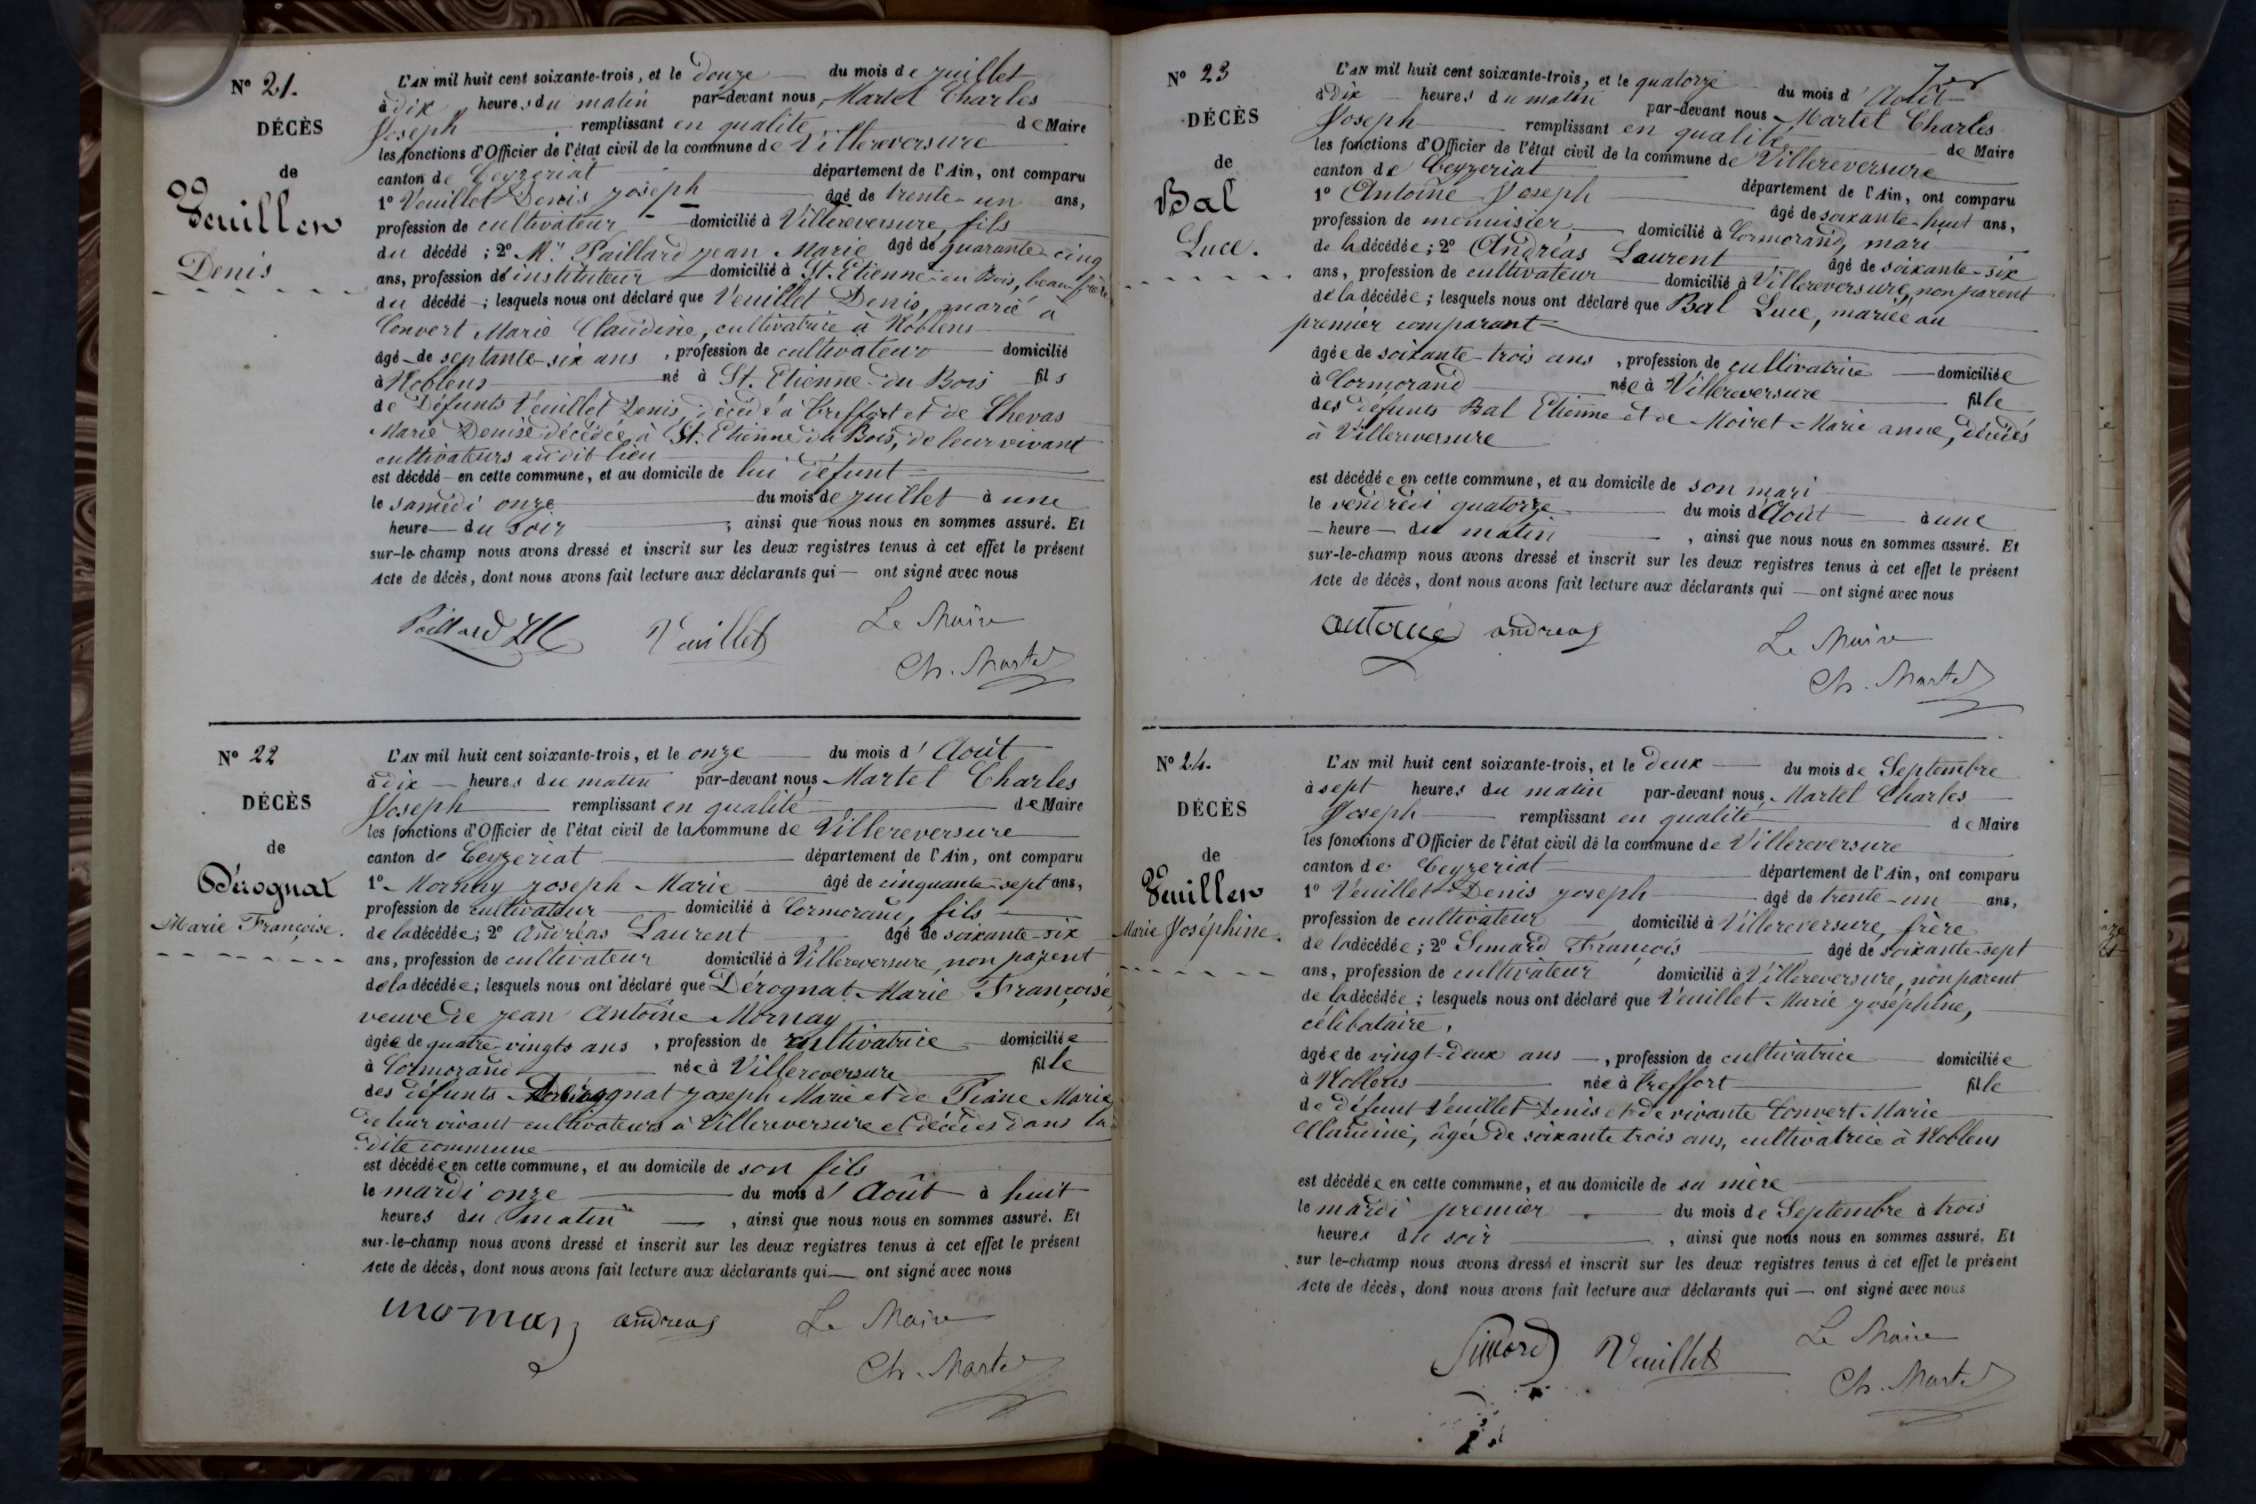 N° 21.
DÉCÈS
de
Veuillet
Denis
L'AN mil huit cent soixante-trois, et le douze du mois de juillet
à dix heures du matin par-devant nous, Martel Charles
Joseph, remplissant en qualité de Maire
les fonctions d'Officier de l'état civil de la commune de Villereversure
canton de Ceyzeriat département de l'Ain, ont comparu
1° Veuillet Denis joseph âgé de trente-un ans,
profession de cultivateur domicilié à Villereversure, fils
du décédé ; 2° Mr. Paillard jean Marie âgé de quarante-cinq
ans, profession de instituteur domicilié à St. Etienne-du Bois, beau-frère
du décédé ; lesquels nous ont déclaré que Veuillet Denis, marié à
Convert Marie Claudine, cultivatrice à Noblens
âgé de septante-six ans, profession de cultivateur domicilié
à Noblens né à St. Etienne-du Bois fils
de Défunts Veuillet Denis, décédé à Treffort et de Chevas
Marie Denise décédée à St. Etienne du Bois, de leur vivant
cultivateurs au dit lieu
est décédé en cette commune, et au domicile de lui défunt
le samedi onze du mois de juillet à une
heure du soir ; ainsi que nous nous en sommes assuré. Et
sur-le-champ nous avons dressé et inscrit sur les deux registres tenus à cet effet le présent
Acte de décès, dont nous avons fait lecture aux déclarants qui ont signé avec nous
Paillard Veuillet Le Maire
Ch. Martel
N° 22
DÉCÈS
de
Dérognat
Marie Françoise.
L'AN mil huit cent soixante-trois, et le onze du mois d'Août
à dix heures du matin par-devant nous, Martel Charles
Joseph remplissant en qualité de Maire
les fonctions d'Officier de l'état civil de la commune de Villereversure
canton de Ceyzeriat département de l'Ain, ont comparu
1° Mornay joseph Marie âgé de cinquante-sept ans,
profession de cultivateur domicilié à Cormorand, fils
de la décédée ; 2° Andréas Laurent âgé de soixante-six
ans, profession de cultivateur domicilié à Villereversure, non parent
de la décédée ; lesquels nous ont déclaré que Dérognat Marie Françoise,
veuve de jean Antoine Mornay
âgée de quatre-vingts ans, profession de cultivatrice domiciliée
à Cormorand née à Villereversure fille
des défunts Dérognat joseph Marie et de Piane Marie
de leur vivant cultivateurs à Villereversure et décédés dans la
dite commune
est décédée en cette commune, et au domicile de son fils
le mardi onze du mois d'Août à huit
heures du matin, ainsi que nous nous en sommes assuré. Et
sur-le-champ nous avons dressé et inscrit sur les deux registres tenus à cet effet le présent
Acte de décès, dont nous avons fait lecture aux déclarants qui ont signé avec nous
mornay andreas Le Maire
Ch. Martel
N° 23
DÉCÈS
de
Bal
Luce.
L'AN mil huit cent soixante-trois, et le quatorze du mois d'Août
à dix heures du matin par-devant nous Martel Charles
Joseph remplissant en qualité de Maire
les fonctions d'Officier de l'état civil de la commune de Villereversure
canton de Ceyzeriat département de l'Ain, ont comparu
1° Antoine Joseph âgé de soixante-huit ans,
profession de menuisier domicilié à Cormorand, mari
de la décédée ; 2° Andréas Laurent âgé de soixante-six
ans, profession de cultivateur domicilié à Villereversure, non parent
de la décédée ; lesquels nous ont déclaré que Bal Luce, mariée au
premier comparant
âgée de soixante-trois ans, profession de cultivatrice domiciliée
à Cormorand née à Villereversure fille
des défunts Bal Etienne et de Moiret Marie anne, décédés
à Villereversure
est décédée en cette commune, et au domicile de son mari
le vendredi quatorze du mois d'Août à une
heure du matin, ainsi que nous nous en sommes assuré. Et
sur-le-champ nous avons dressé et inscrit sur les deux registres tenus à cet effet le présent
Acte de décès, dont nous avons fait lecture aux déclarants qui ont signé avec nous
antoine andreas Le Maire
Ch. Martel
N° 24.
DÉCÈS
de
Veuillet
Marie Joséphine.
L'AN mil huit cent soixante-trois, et le deux du mois de Septembre
à sept heures du matin par-devant nous, Martel Charles
Joseph remplissant en qualité de Maire
les fonctions d'Officier de l'état civil de la commune de Villereversure
canton de Ceyzeriat département de l'Ain, ont comparu
1° Veuillet Denis joseph âgé de trente-un ans,
profession de cultivateur domicilié à Villereversure, frère
de la décédée ; 2° Simard François âgé de soixante-sept
ans, profession de cultivateur domicilié à Villereversure, non parent
de la décédée ; lesquels nous ont déclaré que Veuillet Marie joséphine,
célibataire,
âgée de vingt-deux ans, profession de cultivatrice domiciliée
à Noblens née à Treffort fille
de défunt Veuillet Denis et de vivante Convert Marie
Claudine, âgée de soixante trois ans, cultivatrice à Noblens
est décédée en cette commune, et au domicile de sa mère
le mardi premier du mois de Septembre à trois
heures du soir, ainsi que nous nous en sommes assuré. Et
sur-le-champ nous avons dressé et inscrit sur les deux registres tenus à cet effet le présent
Acte de décès, dont nous avons fait lecture aux déclarants qui ont signé avec nous
Simard Veuillet Le Maire
Ch. Martel